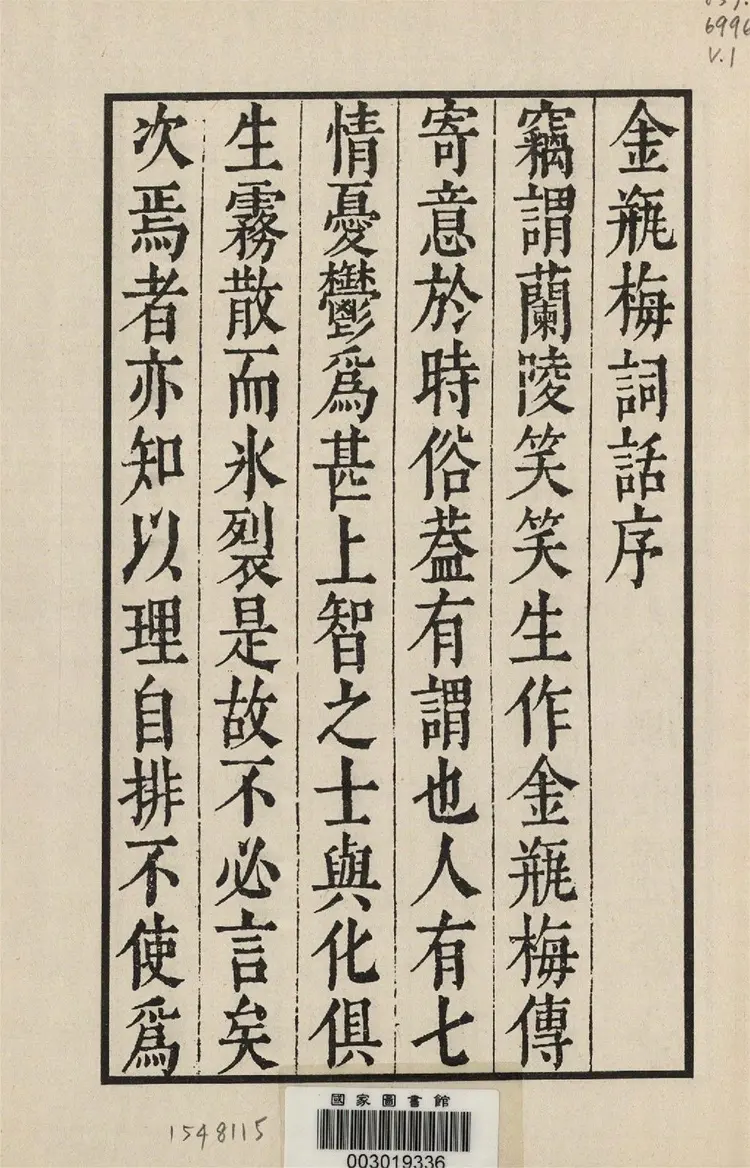 金瓶梅詞話序
竊謂蘭陵笑笑生作金瓶梅傳
寄意於時俗蓋有謂也人有七
情憂鬱為甚上智之士與化俱
生霧散而氷裂是故不必言矣
次焉者亦知以理自排不使為
6996
V.1
1548115
國家圖書館
003019336